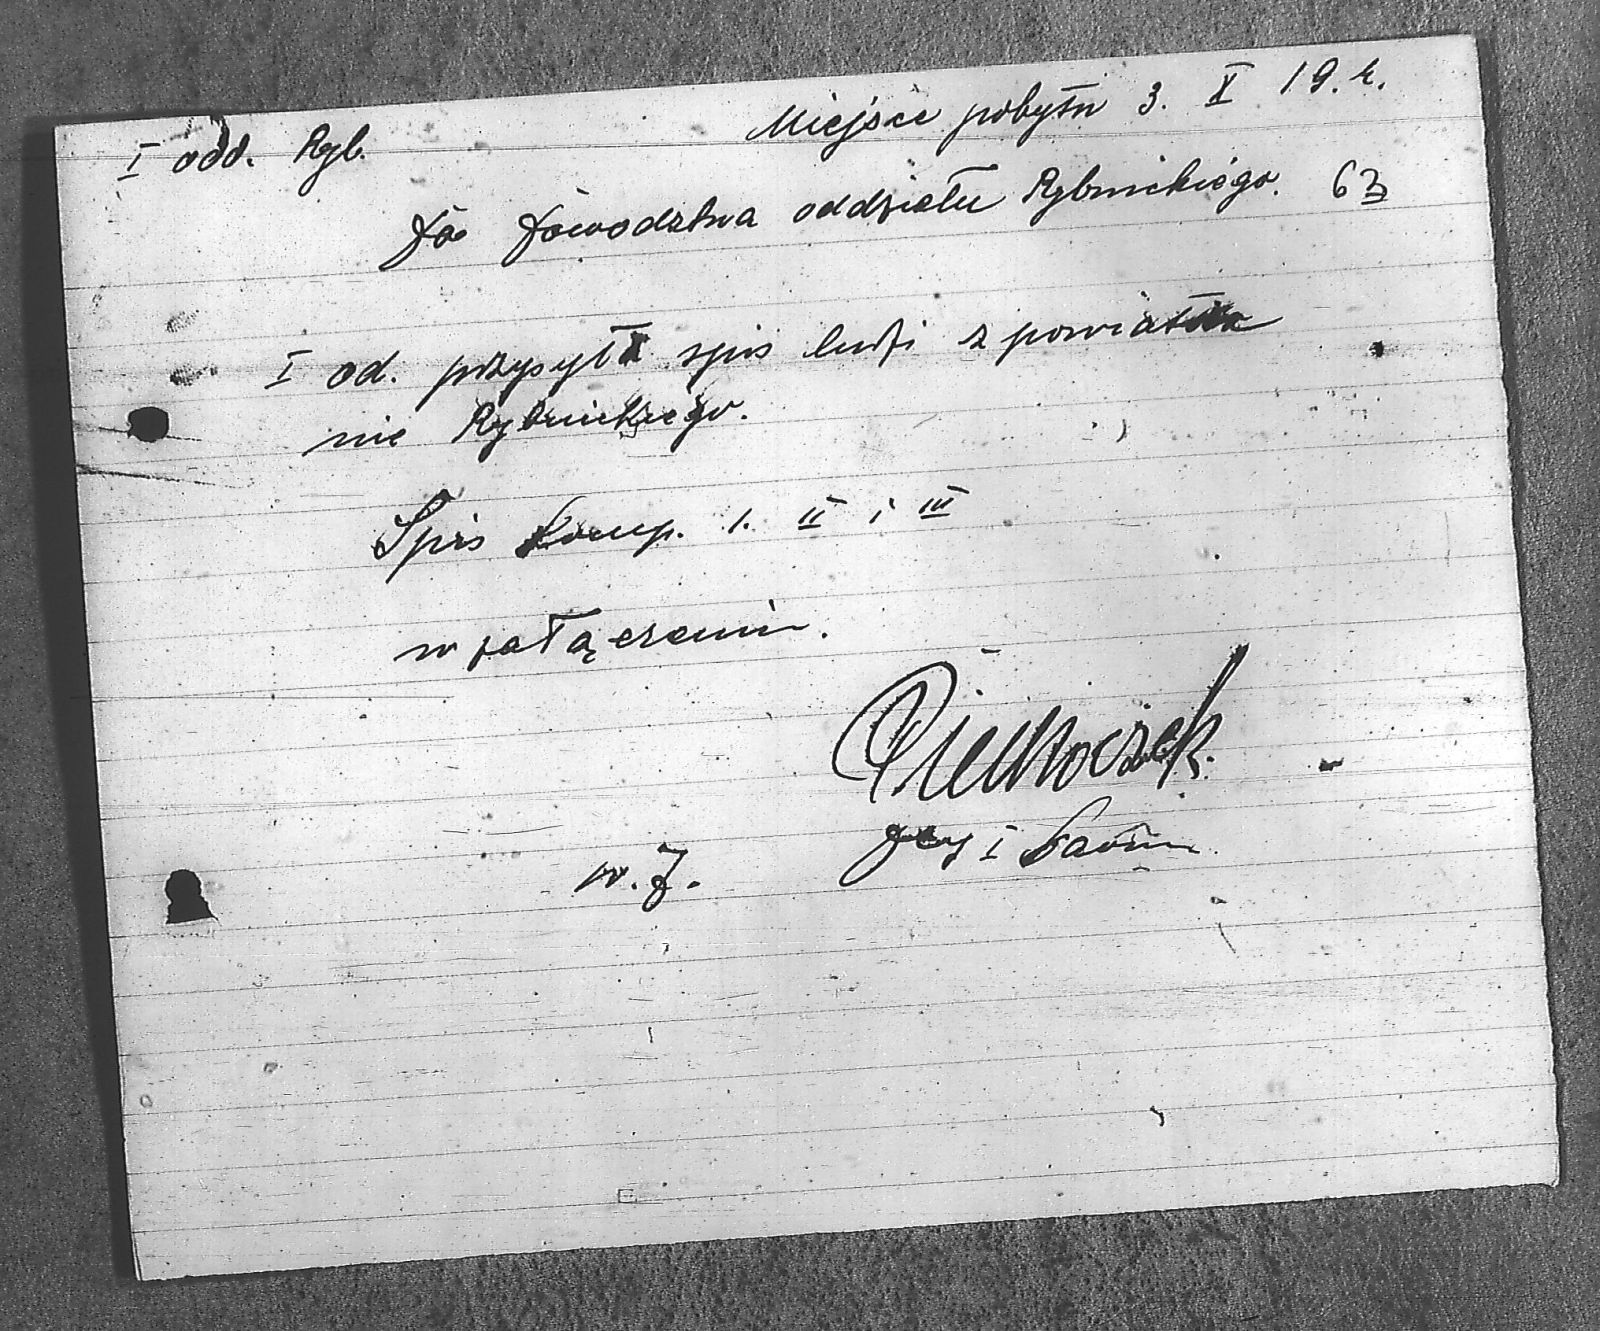 I odd. Ryb.
Miejsce pobytu 3. X 19. r.
63
Do Dowodztwa oddziału Rybnickiego.
I od. przysyła spis ludzi z powiatu
nie Rybnickiego.
Spis komp. I. II i III
w załączeniu.
Piechoczek.
I
w. z.